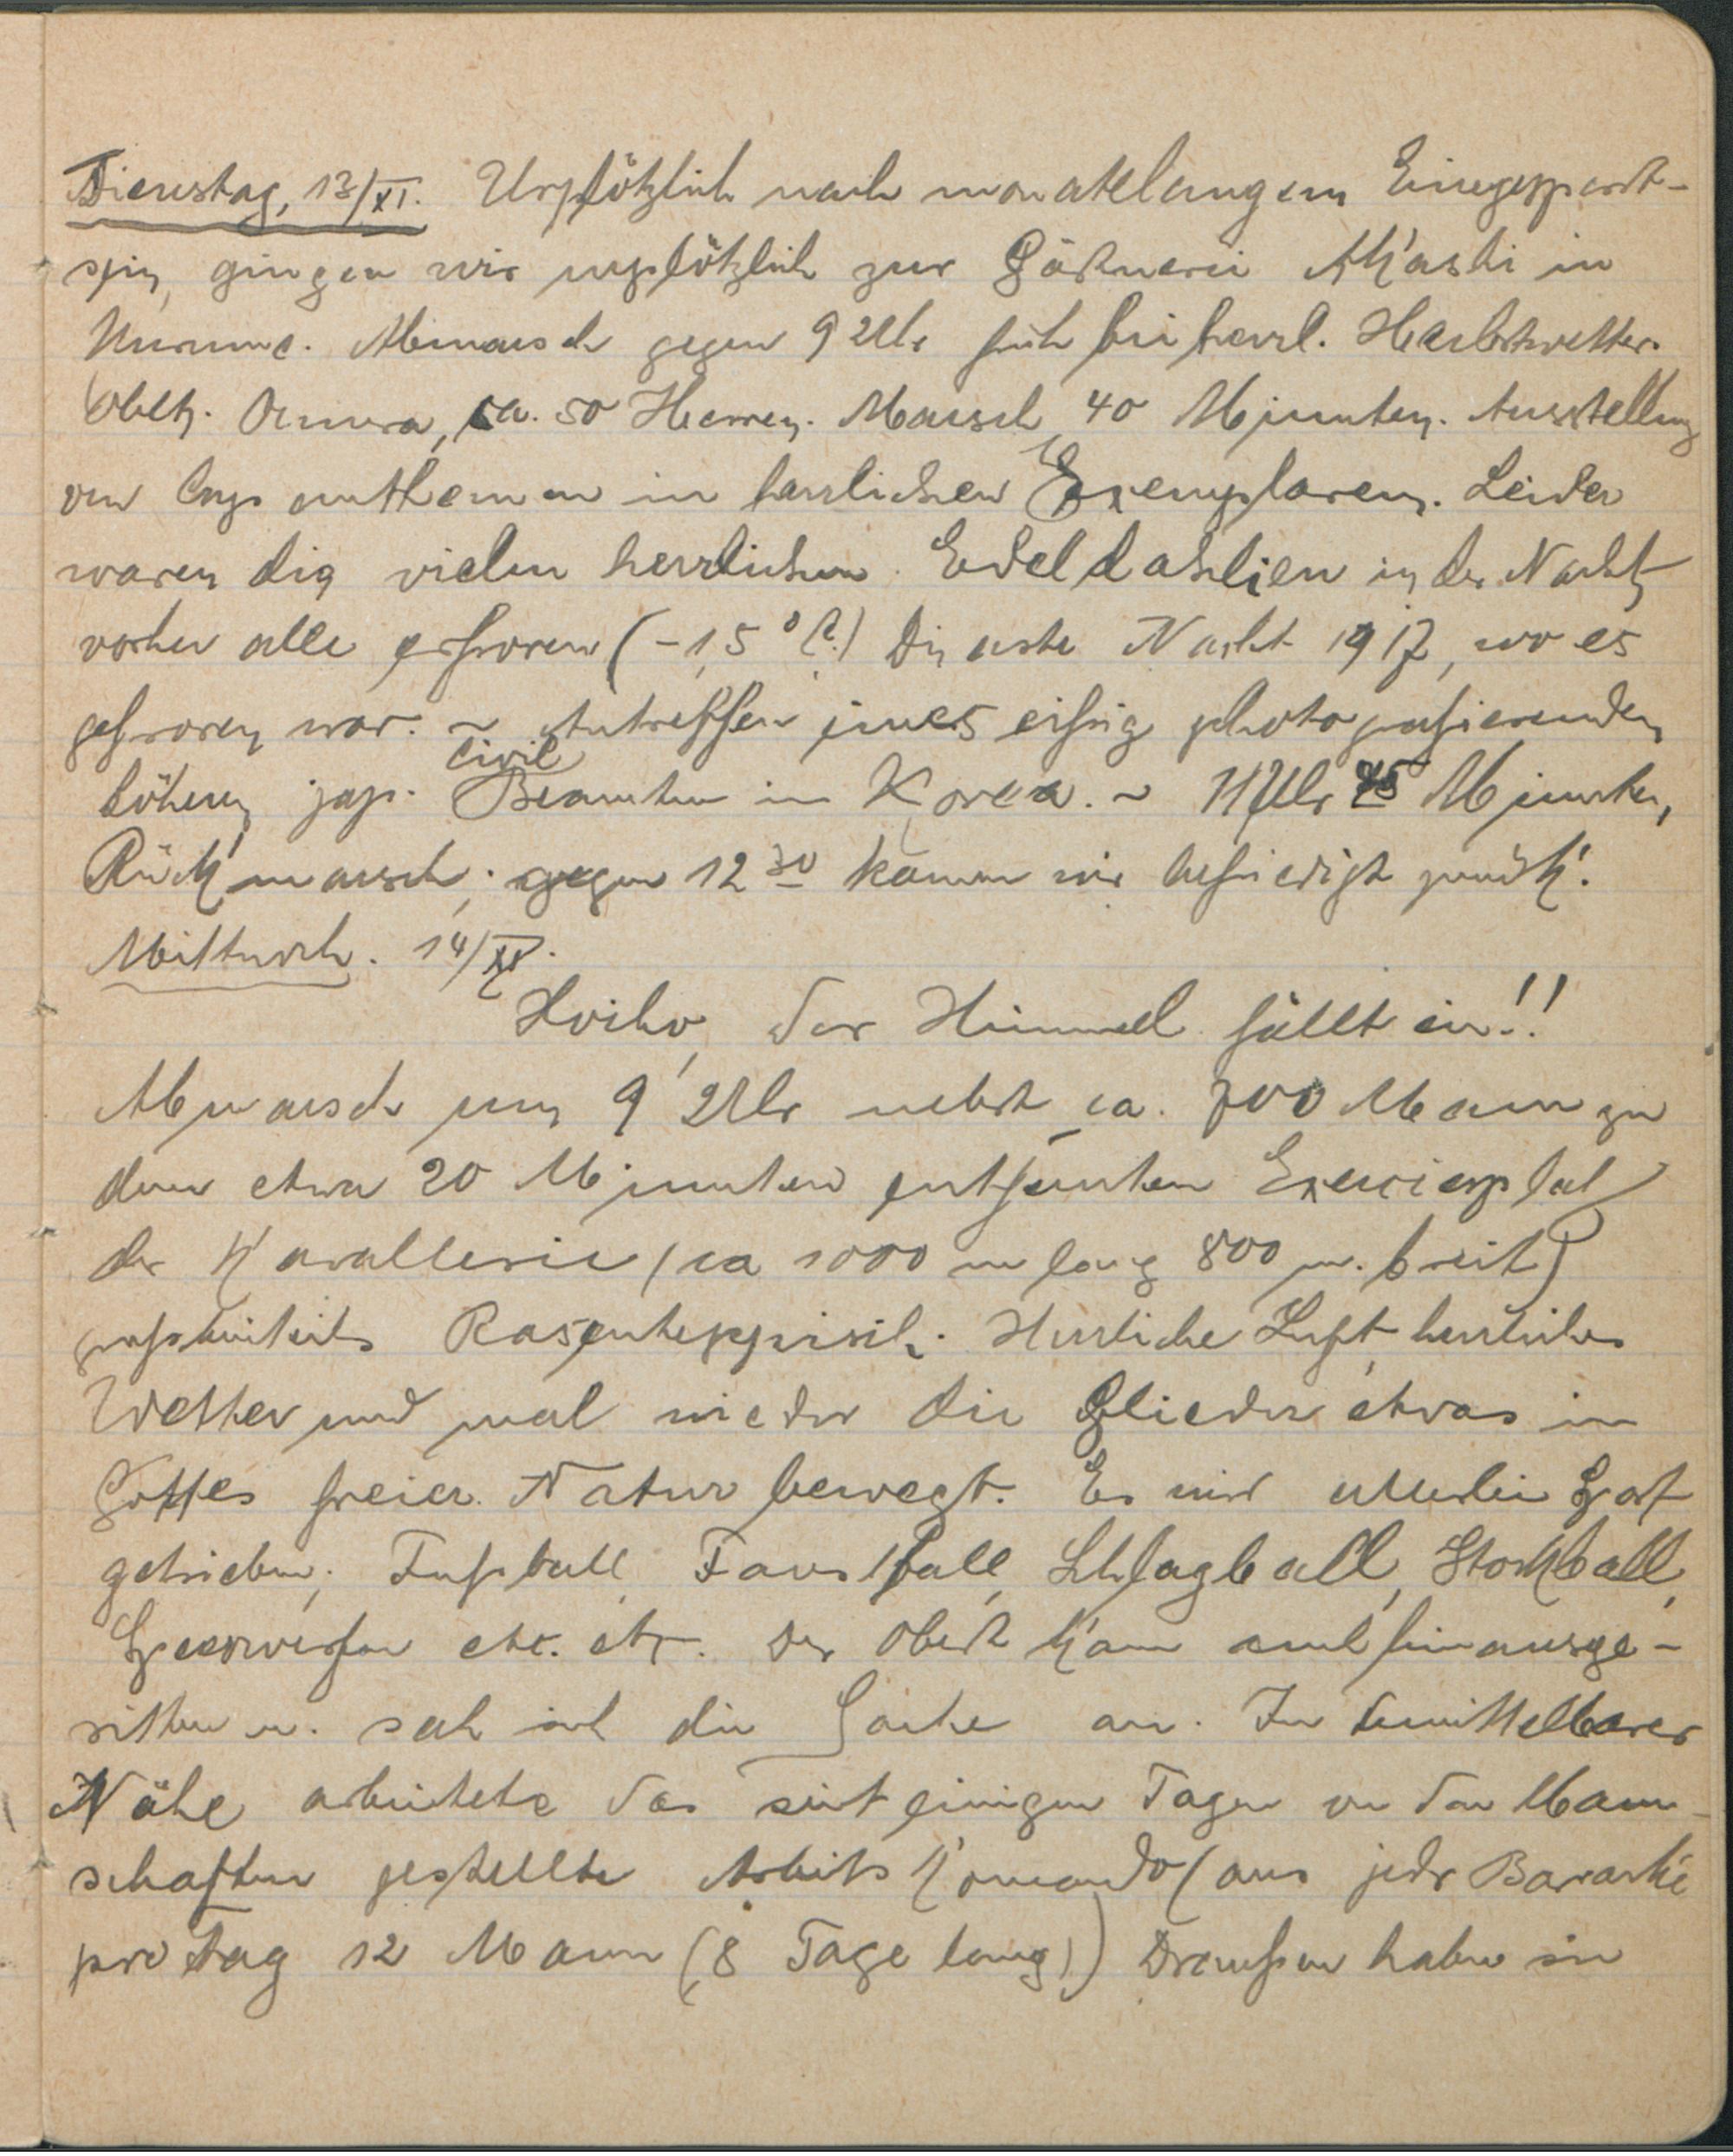 Dienstag, 13/XI. Urplötzlich nach monatelangem Eingesperrt-
sein, gingen wir urplötzlich zur Gärtnerei Akashi in
Kurume. Abmarsch gegen 9 Uhr früh bei herrl. Herbstwetter.
Oblt. Omura, ca. 50 Herren. Marsch 40 Minuten. Ausstellung
von Crysanthemen in herrlichen Exemplaren. Leider
waren die vielen herrlichen Edeldahlien in der Nacht
vorher alle erfroren (-1,5° C.) Die erste Nacht 1917, wo es
gefroren war. ~ Antreffen eines eifrig photografierenden
höheren jap. Civil Beamten in Korea. ~ 11 Uhr 45 Minuten,
Rückmarsch; gegen 12 30 kamen wir befriedigt zurück.
Mittwoch. 14/XI.
Hoiho, der Himmel fällt ein!!
Abmarsch um 9 Uhr nebst ca. 700 Mann zu
dem etwa 20 Minuten entfernten Exercierplatz
der Kavallerie (ca 1000 m lang 800 m. breit)
grösstenteils Rasenteppisch. Herrliche Luft, herrliches
Wetter und mal wieder die Glieder etwas in
Gottes freier Natur bewegt. Es wird allerlei Sport
getrieben; Fußball, Faustball, Schlagball, Stockball,
Speerwerfen etc. etc. Der Oberst kam auch hinausge-
ritten u. sah sich die Sache an. In unmittelbarer
Nähe arbeitete das seit einigen Tagen von den Mann-
schaften gestellte Arbeitskomando (aus jedr Baracke
pro Tag 12 Mann (8 Tage lang)) Draußen haben sie